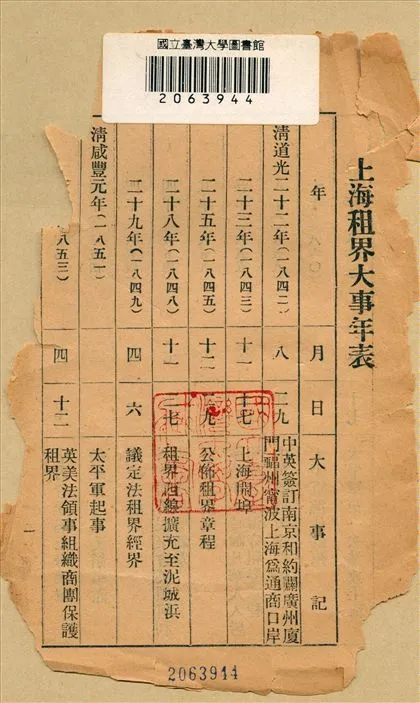 國立臺灣大學圖書館
2063944
上海租界大事年表
年 月 日 大事記
清道光二十二年(一八四二) 八 二九 中英簽訂南京和約闢廣州廈
門福州甯波上海爲通商口岸
二十三年(一八四三) 十一 十七 上海開埠
二十五年(一八四五) 十一 九 公佈租界章程
二十八年(一八四八) 十一 二七 租界西線擴充至泥城浜
二十九年(一八四九) 四 六 議定法租界經界
清咸豐元年(一八五一) 太平軍起事
八五三) 四 十二 英美法領事組織商團保護
租界
一
2063944